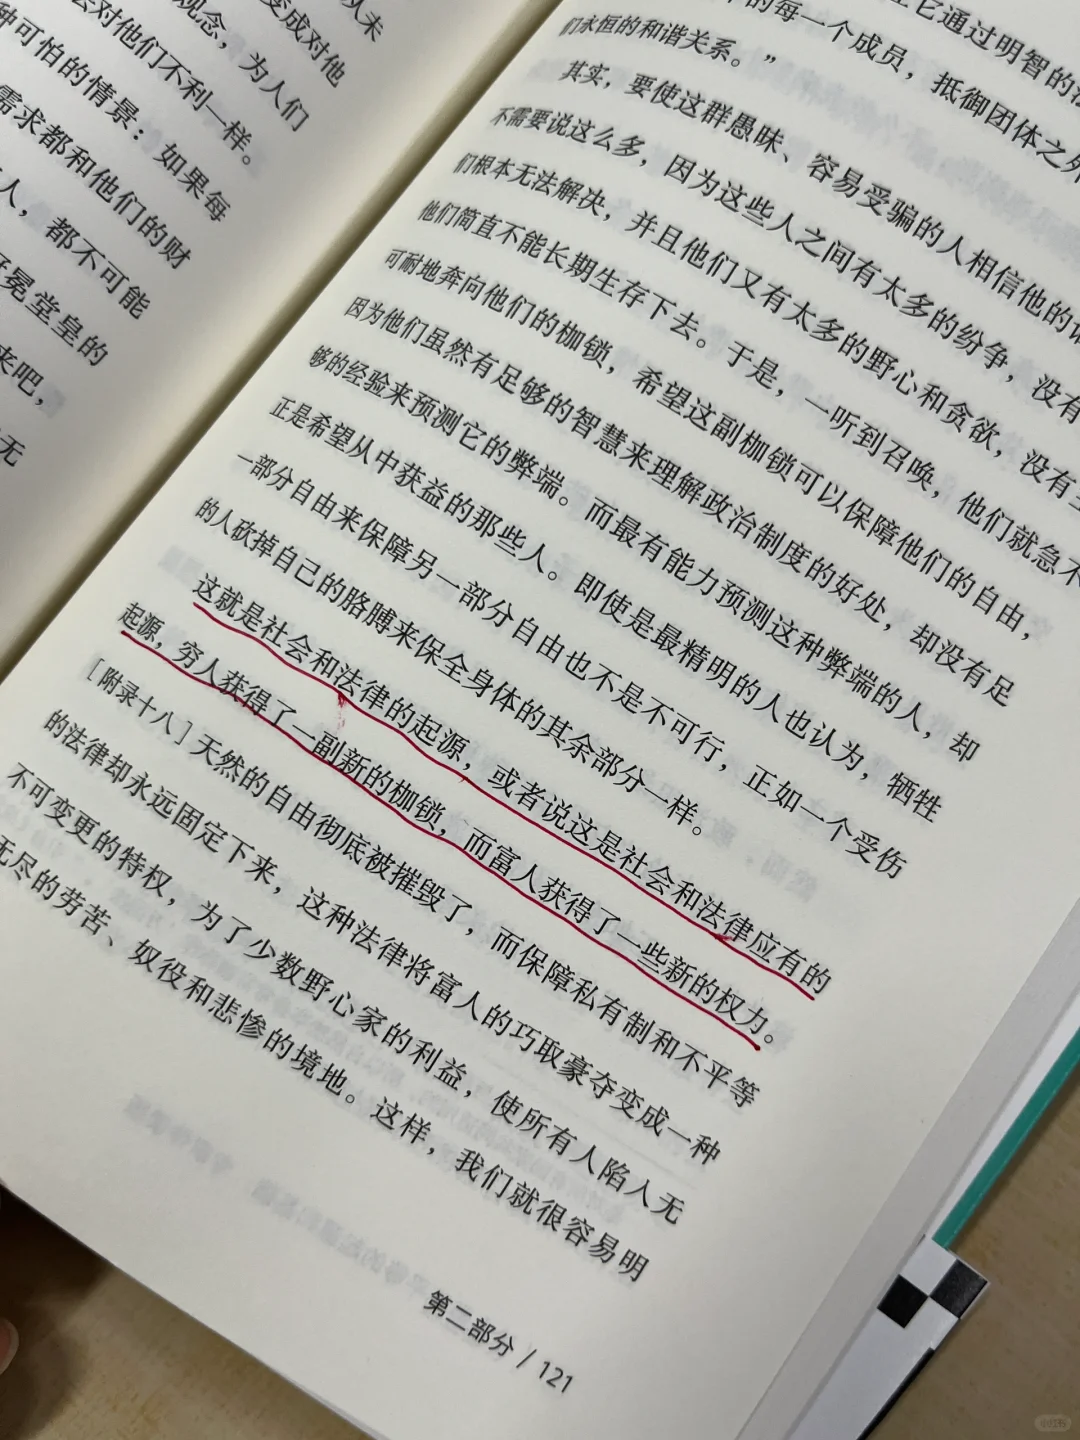 从未
观念，变成对他
会对他们不利一样。为人们
种可怕的情景：如果每
需求都和他们的财
人，都不可能
冠冕堂皇的
来吧，
无
且它通过明智的法
的每一个成员，抵御团体之外
们永恒的和谐关系。”
其实，要使这群愚昧、容易受骗的人相信他的
不需要说这么多，因为这些人之间有太多的纷争，没有
们根本无法解决，并且他们又有太多的野心和贪欲，没有
他们简直不能长期生存下去。于是，一听到召唤，他们就急不
可耐地奔向他们的枷锁，希望这副枷锁可以保障他们的自由，
因为他们虽然有足够的智慧来理解政治制度的好处，却没有足
够的经验来预测它的弊端。而最有能力预测这种弊端的人，却
正是希望从中获益的那些人。即使是最精明的人也认为，牺牲
一部分自由来保障另一部分自由也不是不可行，正如一个受伤
的人砍掉自己的胳膊来保全身体的其余部分一样。
这就是社会和法律的起源，或者说这是社会和法律应有的
起源，穷人获得了一副新的枷锁，而富人获得了一些新的权力。
[附录十八]天然的自由彻底被摧毁了，而保障私有制和不平等
的法律却永远固定下来，这种法律将富人的巧取豪夺变成一种
不可变更的特权，为了少数野心家的利益，使所有人陷入无
无尽的劳苦、奴役和悲惨的境地。这样，我们就很容易明
第二部分 / 121
小红书